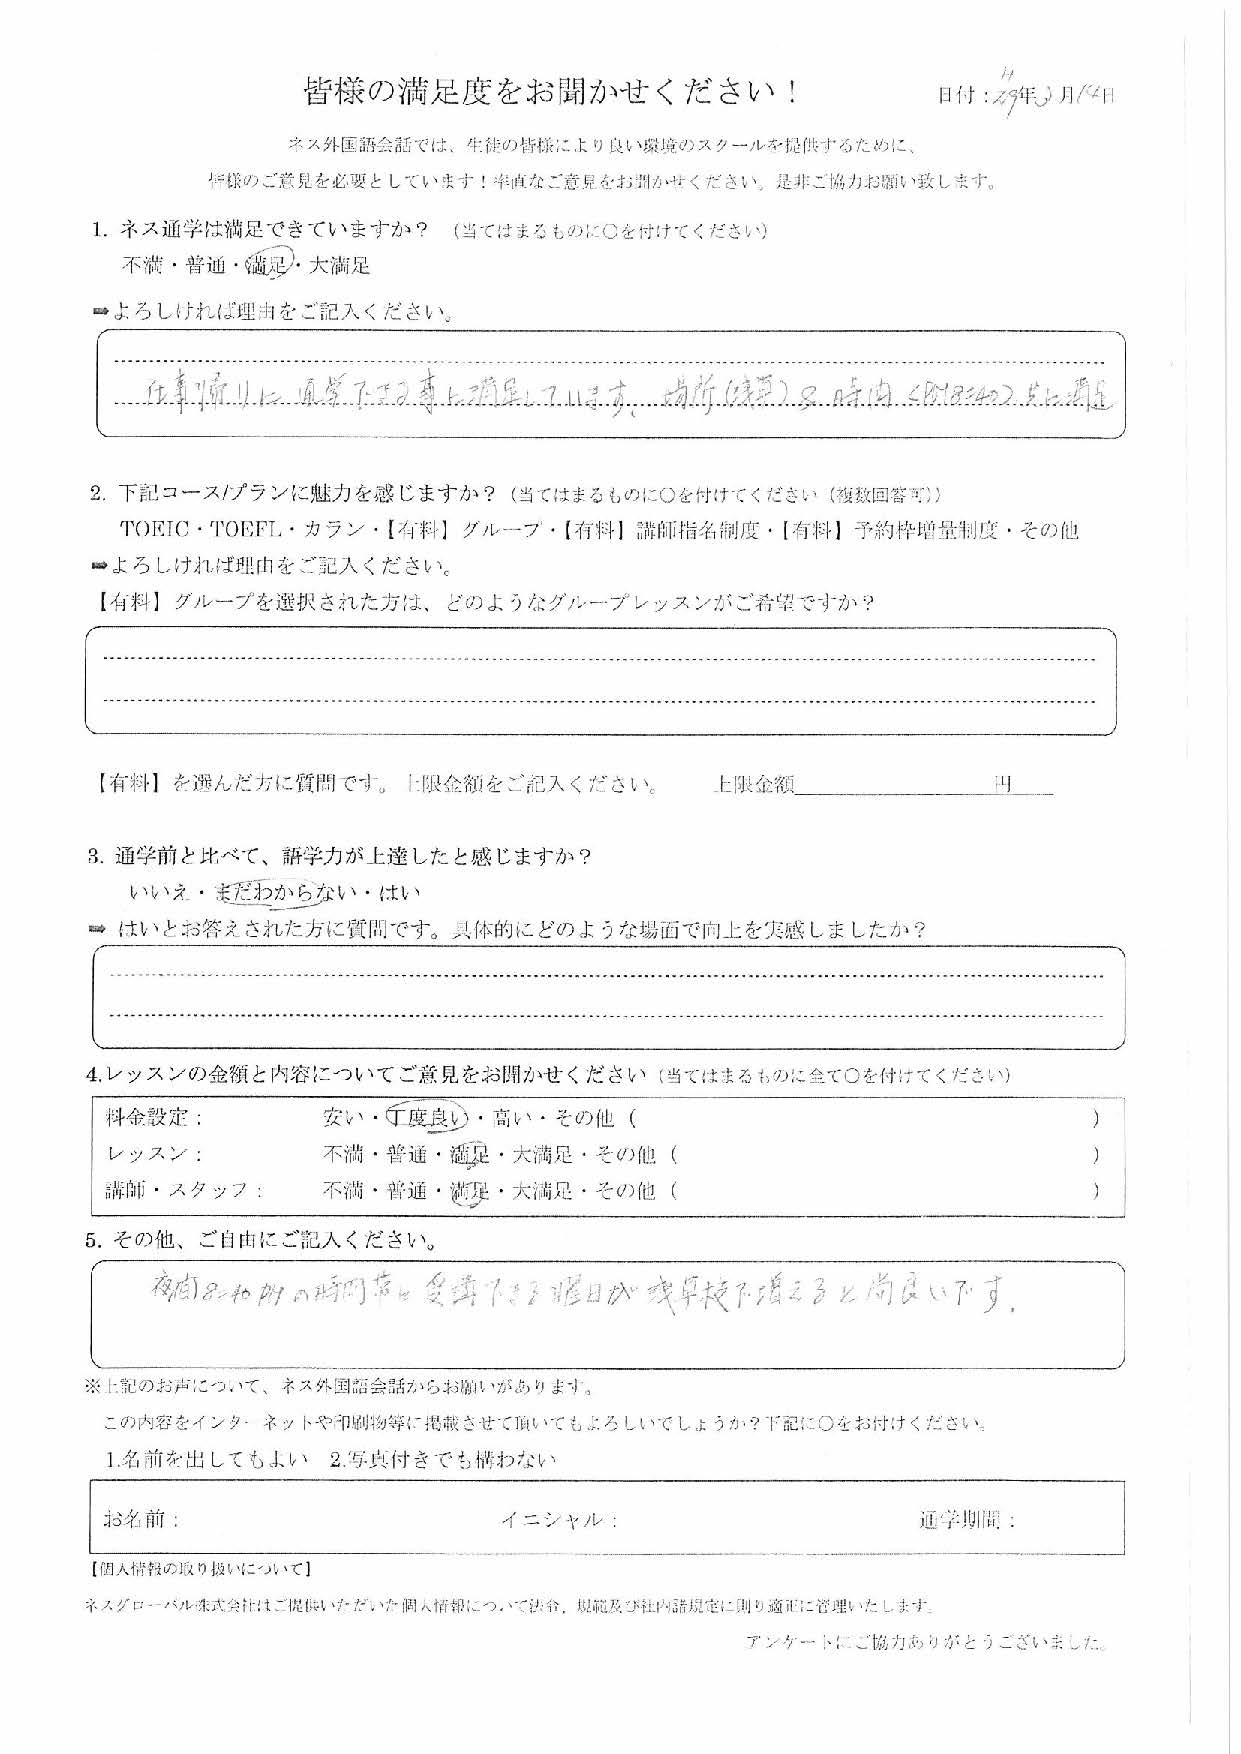 皆様の満足度をお聞かせください！
日付：H29年3月14日
ネス外国語会話では、生徒の皆様により良い環境のスクールを提供するために、
皆様のご意見を必要としています！率直なご意見をお聞かせください。是非ご協力お願い致します。
1. ネス通学は満足できていますか？（当てはまるものに〇を付けてください）
不満・普通・満足・大満足
➡よろしければ理由をご記入ください。
仕事帰りに通学できる事に満足しています。場所（浅草）&時間＜PM8:40＞共に満足
2. 下記コース/プランに魅力を感じますか？（当てはまるものに〇を付けてください（複数回答可））
TOEIC・TOEFL・カラン・【有料】グループ・【有料】講師指名制度・【有料】予約枠増量制度・その他
➡よろしければ理由をご記入ください。
【有料】グループを選択された方は、どのようなグループレッスンがご希望ですか？
【有料】を選んだ方に質問です。上限金額をご記入ください。 上限金額＿＿＿＿＿円
3. 通学前と比べて、語学力が上達したと感じますか？
いいえ・まだわからない・はい
➡ はいとお答えされた方に質問です。具体的にどのような場面で向上を実感しましたか？
4.レッスンの金額と内容についてご意見をお聞かせください（当てはまるものに全て〇を付けてください）
料金設定： 安い・丁度良い・高い・その他（ ）
レッスン： 不満・普通・満足・大満足・その他（ ）
講師・スタッフ： 不満・普通・満足・大満足・その他（ ）
5. その他、ご自由にご記入ください。
夜間8:40PMの時間帯に受講できる曜日が浅草校で増えると尚良いです。
※上記のお声について、ネス外国語会話からお願いがあります。
この内容をインターネットや印刷物等に掲載させて頂いてもよろしいでしょうか？下記に〇をお付けください。
1.名前を出してもよい 2.写真付きでも構わない
お名前： イニシャル： 通学期間：
【個人情報の取り扱いについて】
ネスグローバル株式会社はご提供いただいた個人情報について法令，規範及び社内諸規定に則り適正に管理いたします。
アンケートにご協力ありがとうございました。